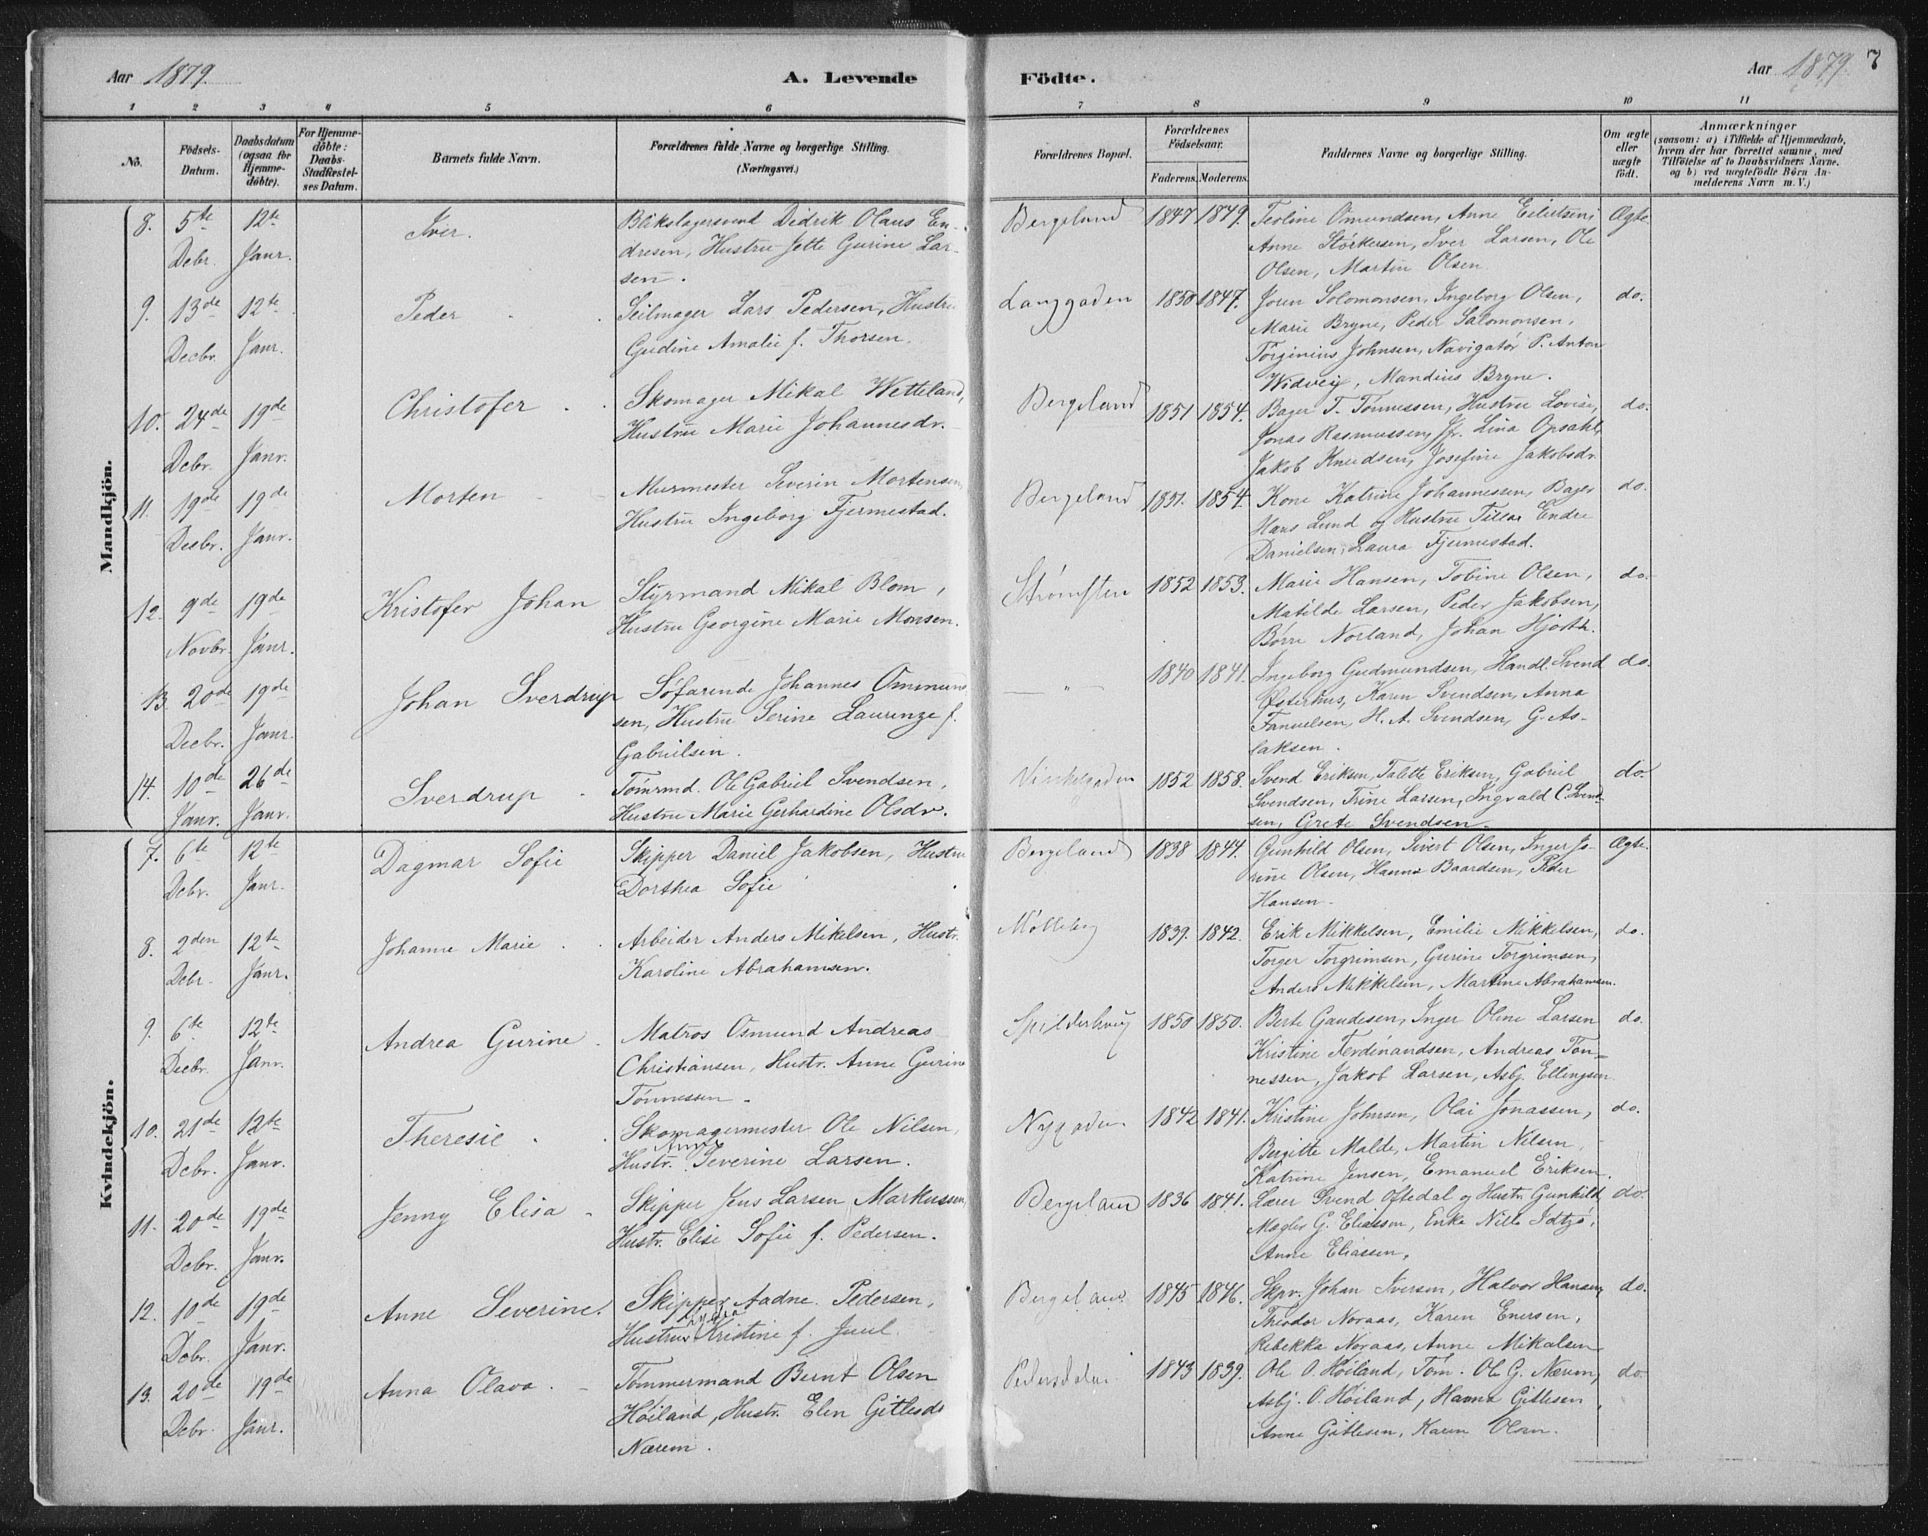 Aar 1879.
A. Levende
Födte.
Aar 1879. 7
1 2 3 4 5 6 7 8 9 10 11
No.
Födsels-
Datum.
Daabsdatum
(ogsaa for
Hjemme-
döbte).
For Hjemme-
döbte:
Daabs-
Stadfæstel-
ses Datum.
Barnets fulde Navn.
Forældrenes fulde Navne og borgerlige Stilling.
(Næringsvei.)
Forældrenes Bopæl.
Forældrenes
Födselsaar.
Faderens. Moderens.
Faddernes Navne og borgerlige Stilling.
Om ægte
eller
uægte
födt.
Anmærkninger
(saasom: a) i Tilfælde af Hjemmedaab,
hvem der har forrettet samme, med
Tilföielse af to Daabsvidners Navne.
og b) ved uægtefödte Börn An-
melderens Navn m. V.)
Mandkjön.
8. 5te Debr. 12te Janr.
Iver.
Blikslagersvend Didrik Olaus En-
dresen, Hustru Jette Gurine Lar-
sen.
Bergeland 1847 1849.
Teoline Osmundsen, Anne Eilertsen,
Anne Störkersen, Iver Larsen, Ole
Olsen, Martin Olsen
Ægte
9. 13de Decbr. 12te Janr.
Peder
Seilmager Lars Pedersen, Hustru
Gudine Amalie f. Thorsen.
Langgaden 1850 1847.
Joren Solomonsen, Ingeborg Olsen,
Marie Bryne, Peder Salomonsen,
Törginius Johnsen, Navigatör P. Anton
Widveig, Mandius Bryne.
do.
10. 24de Debr. 19de Janr.
Christofer
Skomager Mikal Wetteland,
Hustru Marie Johannesdr.
Bergeland 1851 1854.
Bager T. Tönnessen, Hustru Lovise,
Jonas Rasmussen, Jfr. Lina Opsahl,
Jakob Knudsen, Josefine Jakobsdr.
do.
11. 19de Decbr. 19de Janr.
Morten
Murmester Severin Mortensen,
Hustru Ingeborg Fjermestad.
Bergeland 1851. 1854.
Kone Katrine Johannessen, Bager
Hans Lund og Hustru Endre
Danielsen, Laura Fjermestad.
do.
12. 9de Novbr. 19de Janr.
Kristofer Johan
Styrmand Mikal Blom,
Hustru Georgine Marie Monsen.
Strömsten 1852 1853.
Marie Hansen, Tobine Olsen,
Matilde Larsen, Peder Jakobsen,
Börre Norland, Johan Hjorth.
do.
13. 20de Decbr. 19de Janr.
Johan Sverdrup
Söfarende Johannes Ommun-
sen, Hustru Serine Laurenze f.
Gabrielsen.
" 1840 1841.
Ingeborg Gudmundsen, Handl. Svend
Østerhus, Karen Svendsen, Anna
Fanuelsen, H. A. Svendsen, G. As-
laksen.
do.
14. 10de Janr. 26de Janr.
Sverdrup
Tömmd. Ole Gabriel Svendsen,
Hustru Marie Gerhardine Olsdr.
Vinkelgaden 1852 1858.
Svend Eriksen, Talette Eriksen, Gabriel
Svendsen, Trine Larsen, Ingvald C. Svend-
sen, Grete Svendsen.
do.
Kvindekjön.
7. 6te Debr. 12te Janr.
Dagmar Sofie
Skipper Daniel Jakobsen, Hustru
Dorthea Sofie
Bergeland 1838 1844.
Gunhild Olsen, Sivert Olsen, Inger Se-
rine Olsen, Hanna Baardsen, Peder
Hansen.
Ægte.
8. 2den Debr. 12te Janr.
Johanne Marie
Arbeider Anders Mikelsen, Hustr.
Karoline Abrahamsen.
Mölleberg 1839. 1842.
Erik Mikkelsen, Emilie Mikkelsen,
Torger Torgrimsen, Gurine Torgrimsen,
Anders Mikkelsen, Martine Abrahamsen.
do.
9. 6te Decbr. 12te Janr.
Andrea Gurine
Matros Osmund Andreas
Christiansen, Hustr. Anne Gurine
Tönnessen.
Spilderhaug 1850 1850.
Berte Gaudesen, Inger Oline Larsen
Kristine Ferdinandsen, Andreas Tön-
nessen, Jakob Larsen, Asbj. Ellingsen
do.
10. 21de Debr. 12te Janr.
Theresie
Skomagermester Ole Nilsen,
Hustr. Anne Severine Larsen.
Nygaden 1842 1841.
Kristine Johnsen, Olai Jonassen,
Bergitte Malde, Martin Nilsen,
Katrine Jensen, Emanuel Eriksen.
do.
11. 20de Debr. 19de Janr.
Jenny Elisa
Skipper Jens Larsen Markussen
Hustr. Elise Sofie f. Pedersen.
Bergeland 1836 1841.
Lærer Svend Oftedal og Hustr. Gunhild,
Mægler G. Eliassen, Enke Nille Idtsö,
Anne Eliassen,
do.
12. 10de Debr. 19de Janr.
Anne Severine.
Skipper Aadne Pedersen,
Hustru Kristine f. Juul
Bergeland 1845 1846.
Skpr. Johan Iversen, Halvor Hansen,
Theodor Noraas, Karen Enersen,
Rebekka Noraas, Anne Mikalsen
do.
13. 20de Debr. 19de Janr.
Anna Olava.
Tömmermand Bernt Olsen
Höiland, Hustr. Elen Gitlesdr
Nærem.
Pedersdalen 1843 1839.
Ole O. Höiland, Töm. Ole G. Nærem,
Asbj. O. Höiland, Hanna Gitlesen,
Anne Gitlesen, Karen Olsen.
do.